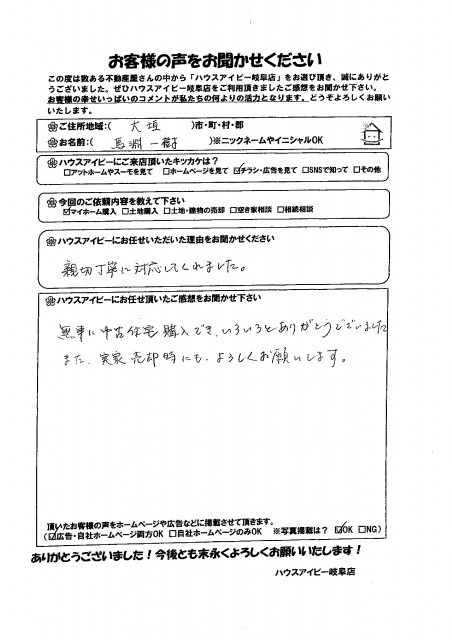 お客様の声をお聞かせください
この度は数ある不動産屋さんの中から「ハウスアイビー岐阜店」をお選び頂き、誠にありがと
うございました。ぜひハウスアイビー岐阜店をご利用頂きましたご感想をお聞かせ下さい。
お客様の幸せいっぱいのコメントが私たちの何よりの活力となります。どうぞよろしくお願い
いたします。
ご住所地域:( 大垣 )市・町・村・郡
お名前:( 馬淵 一樹 )※ニックネームやイニシャルOK
ハウスアイビーにご来店頂いたキッカケは？
□アットホームやスーモを見て □ホームページを見て ☑チラシ・広告を見て □SNSで知って □その他
今回のご依頼内容を教えて下さい
☑マイホーム購入 □土地購入 □土地・建物の売却 □空き家相談 □相続相談
ハウスアイビーにお任せいただいた理由をお聞かせください
親切丁寧に対応してくれました。
ハウスアイビーにお任せ頂いたご感想をお聞かせ下さい
無事に中古住宅購入でき、いろいろとありがとうございました
また、実家売却時にも、よろしくお願いします。
頂いたお客様の声をホームページや広告などに掲載させて頂きます。
(☑広告・自社ホームページ両方OK □自社ホームページのみOK ※写真掲載は？ ☑OK □NG)
ありがとうございました！今後とも末永くよろしくお願いいたします！
ハウスアイビー岐阜店